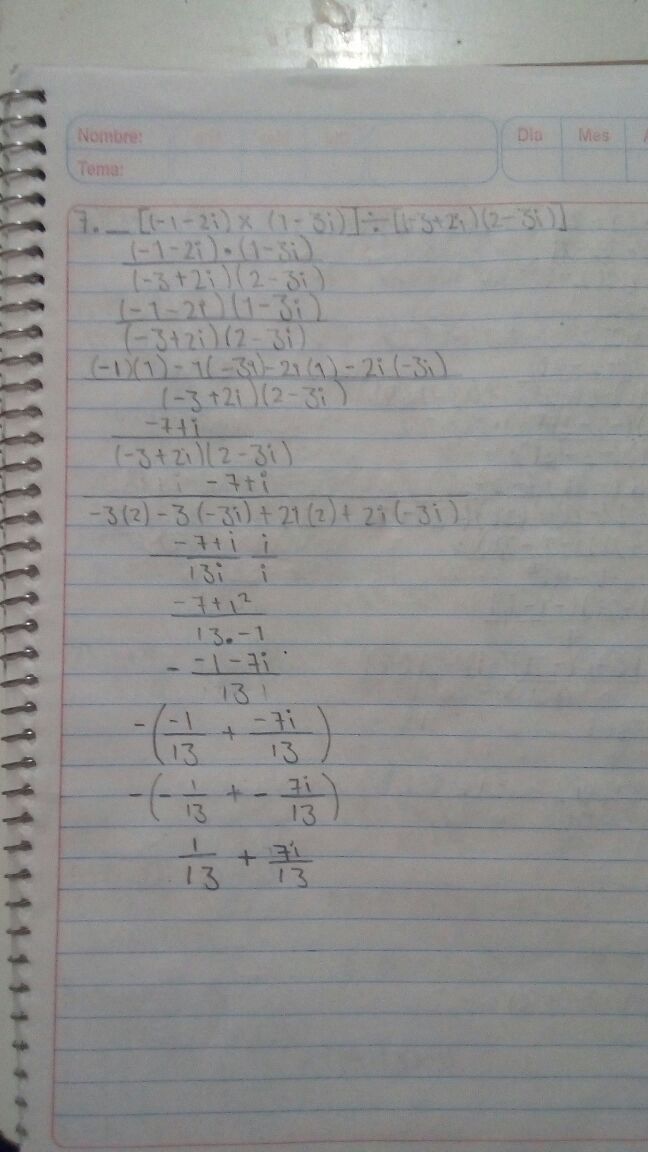 Nombre:
Dia
Mes
Tema:
7._ [(-1-2i) × (1-3i)] ÷ [(-3+2i)(2-3i)]
(-1-2i)•(1-3i)
(-3+2i)(2-3i)
(-1-2i)(1-3i)
(-3+2i)(2-3i)
(-1)(1)-1(-3i)-2i(1)-2i(-3i)
(-3+2i)(2-3i)
-7+i
(-3+2i)(2-3i)
-7+i
-3(2)-3(-3i)+2i(2)+2i(-3i)
-7+i i
13i i
-7+i²
13•-1
- -1-7i
13
-(-1/13 + -7i/13)
-(-1/13 + - 7i/13)
1/13 + 7i/13